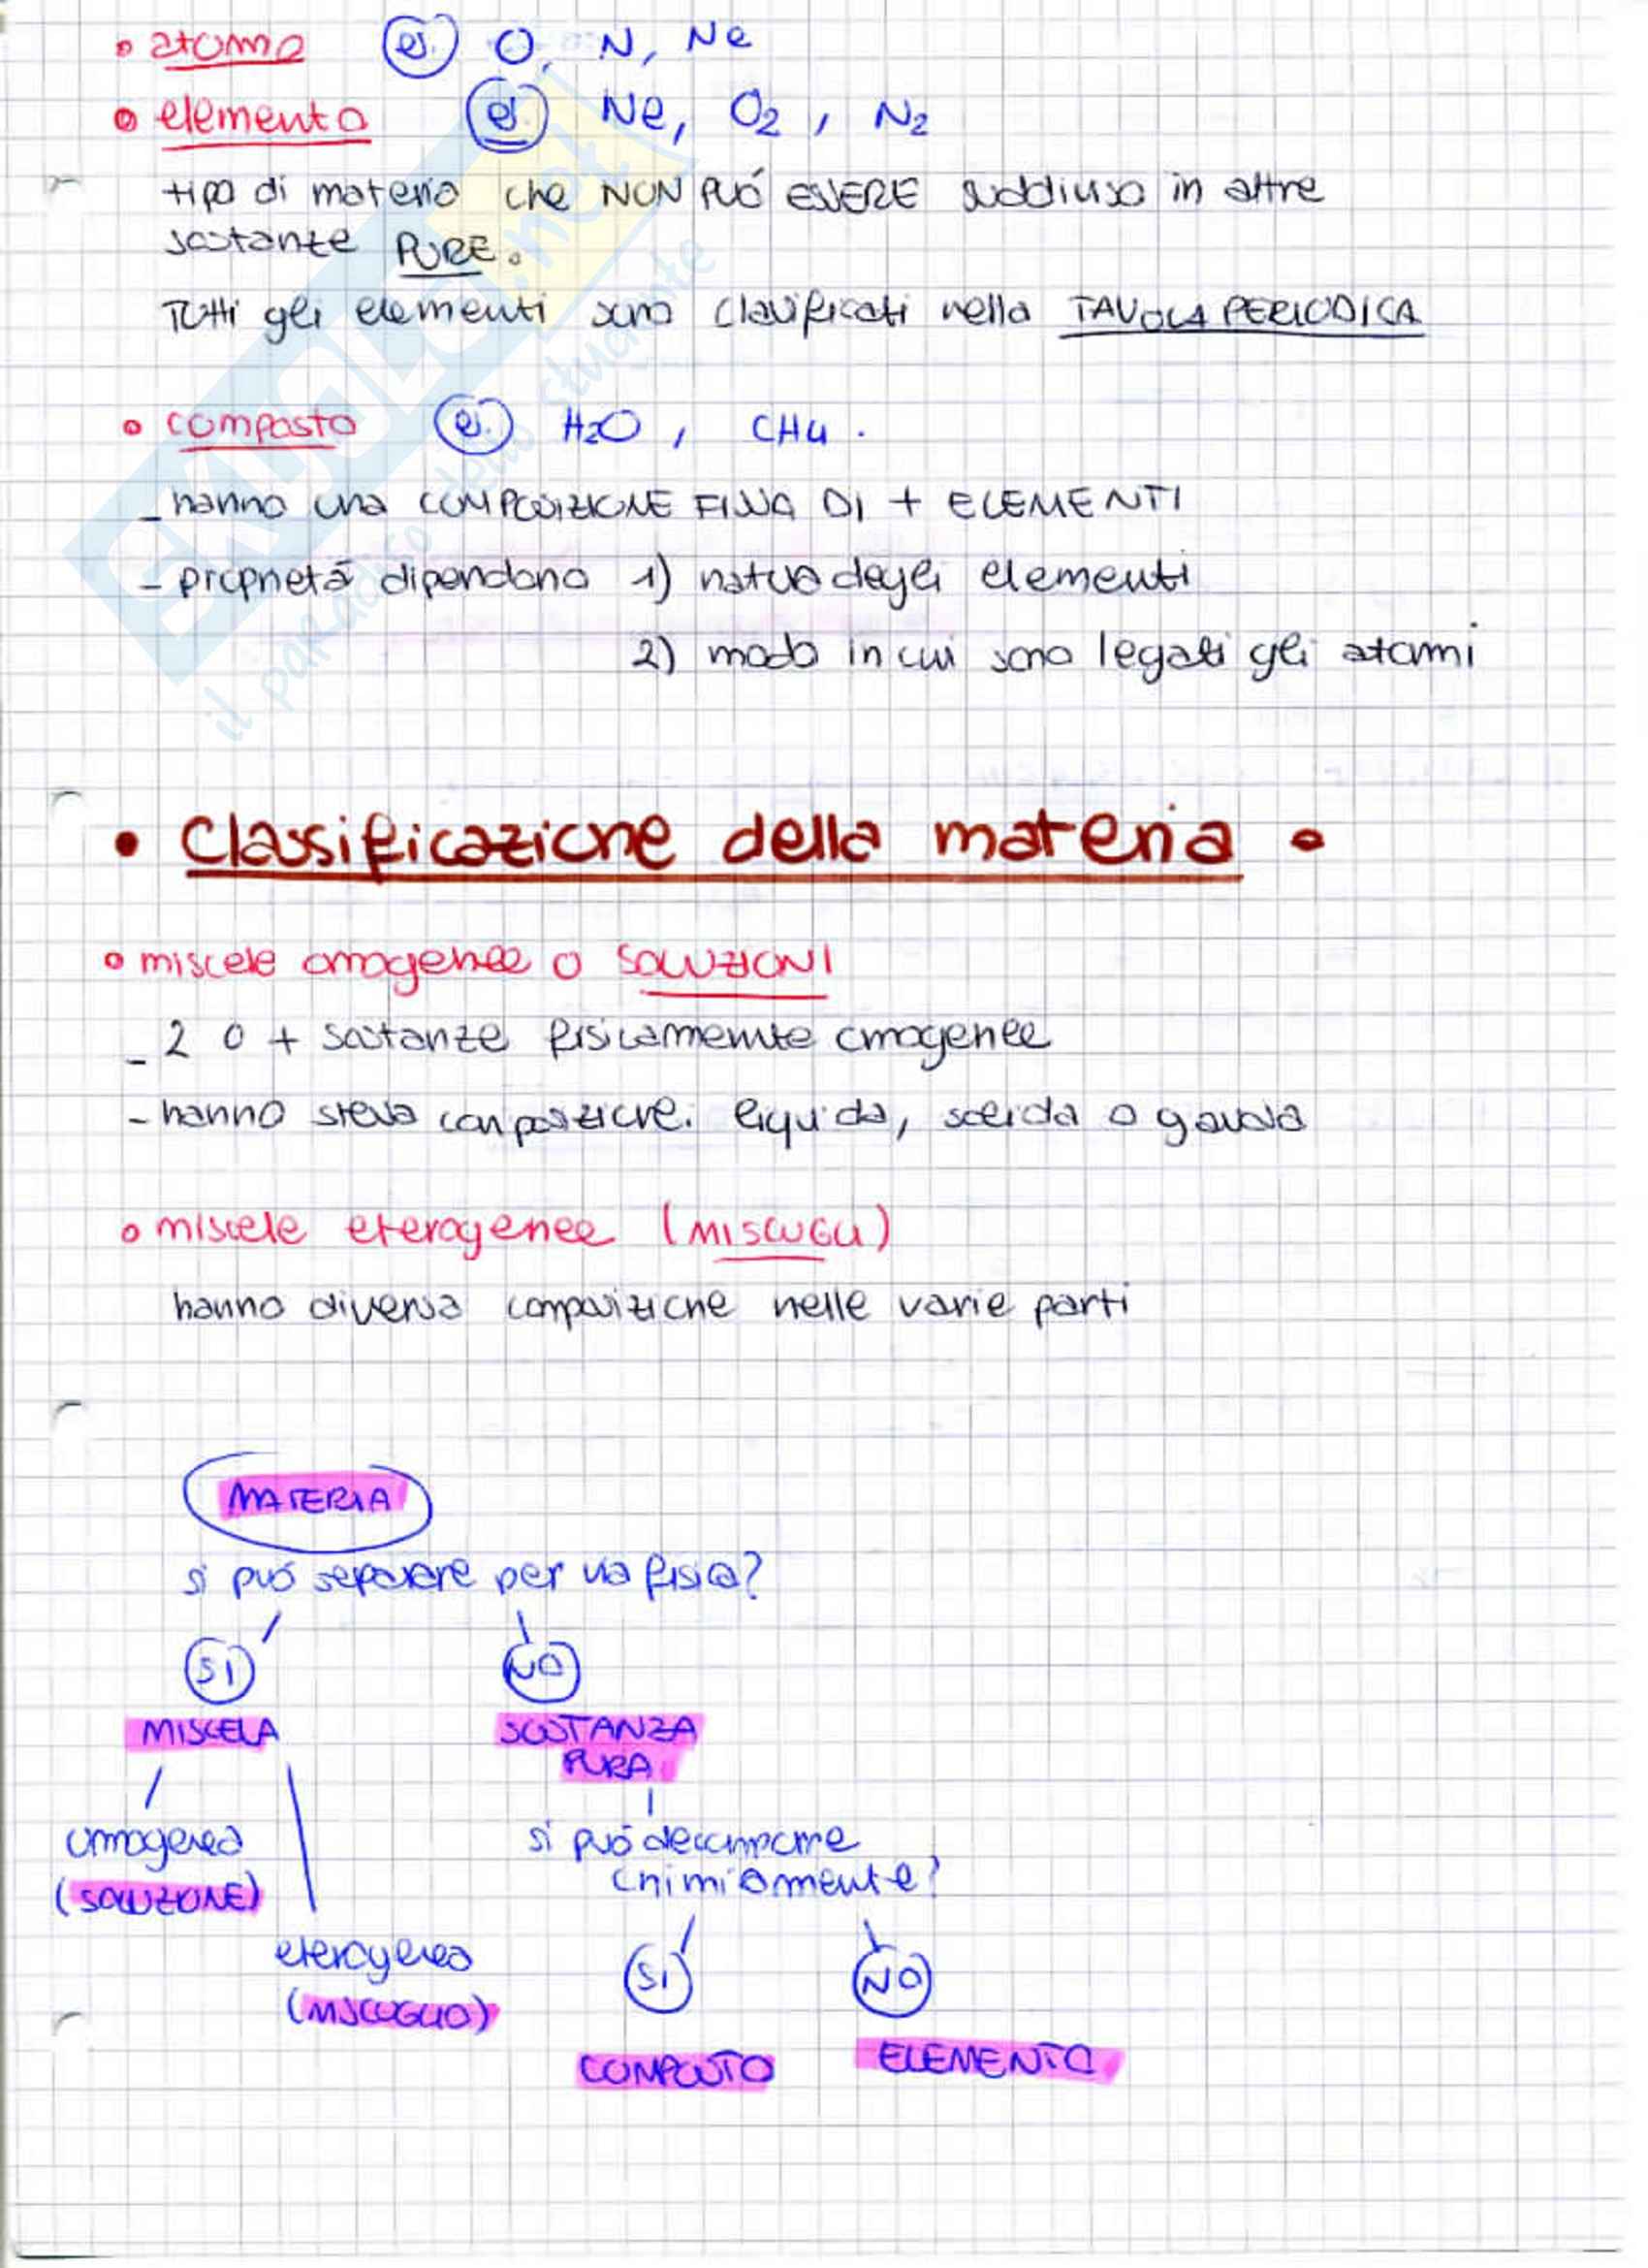 • atomo (es.) O, N, Ne
• elemento (es.) Ne, O₂, N₂
tipo di materia che NON PUÓ ESSERE suddivisa in altre
sostanze PURE.
Tutti gli elementi sono classificati nella TAVOLA PERIODICA
• composto (es.) H₂O, CH₄.
- hanno una COMPOSIZIONE FISSA DI + ELEMENTI
- proprietá dipendono 1) natura degli elementi
2) modo in cui sono legati gli atomi
• Classificazione della materia •
• miscele omogenee o SOLUZIONI
- 2 o + sostanze fisicamente omogenee
- hanno stessa composizione. liquida, solida o gassosa
• miscele eterogenee (MISCUGLI)
hanno diversa composizione nelle varie parti
MATERIA
si puó separare per via fisica?
SI NO
MISCELA SOSTANZA
PURA
omogenea si puó decomporre
(SOLUZIONE) chimicamente?
eterogenea SI NO
(MISCUGLIO)
COMPOSTO ELEMENTO
SKUOLA.net
il paradiso dello studente